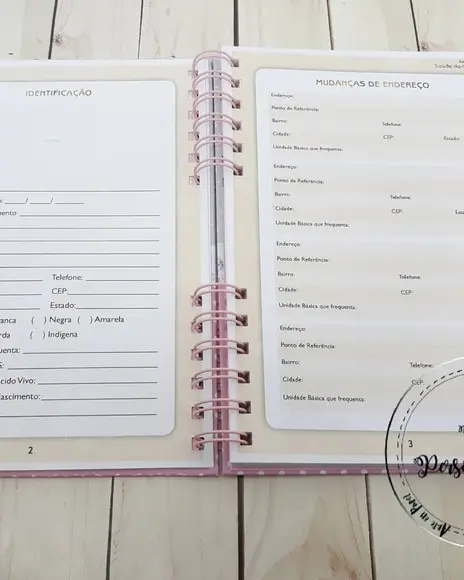 IDENTIFICAÇÃO
Telefone:
CEP:
Estado:
anca ( ) Negra ( ) Amarela
rda ( ) Indígena
uenta:
S:
cido Vivo:
Nascimento:
2
Saúde da
MUDANÇAS DE ENDEREÇO
Endereço:
Ponto de Referência:
Bairro: Telefone:
Cidade: CEP: Estado:
Unidade Básica que frequenta:
Endereço:
Ponto de Referência:
Bairro: Telefone:
Cidade: CEP:
Unidade Básica que frequenta:
Endereço:
Ponto de Referência:
Bairro: Telefone:
Cidade: CEP:
Unidade Básica que frequenta:
Endereço:
Ponto de Referência:
Bairro: Telefone:
Cidade: CEP:
Unidade Básica que frequenta:
3
Arte em Papel